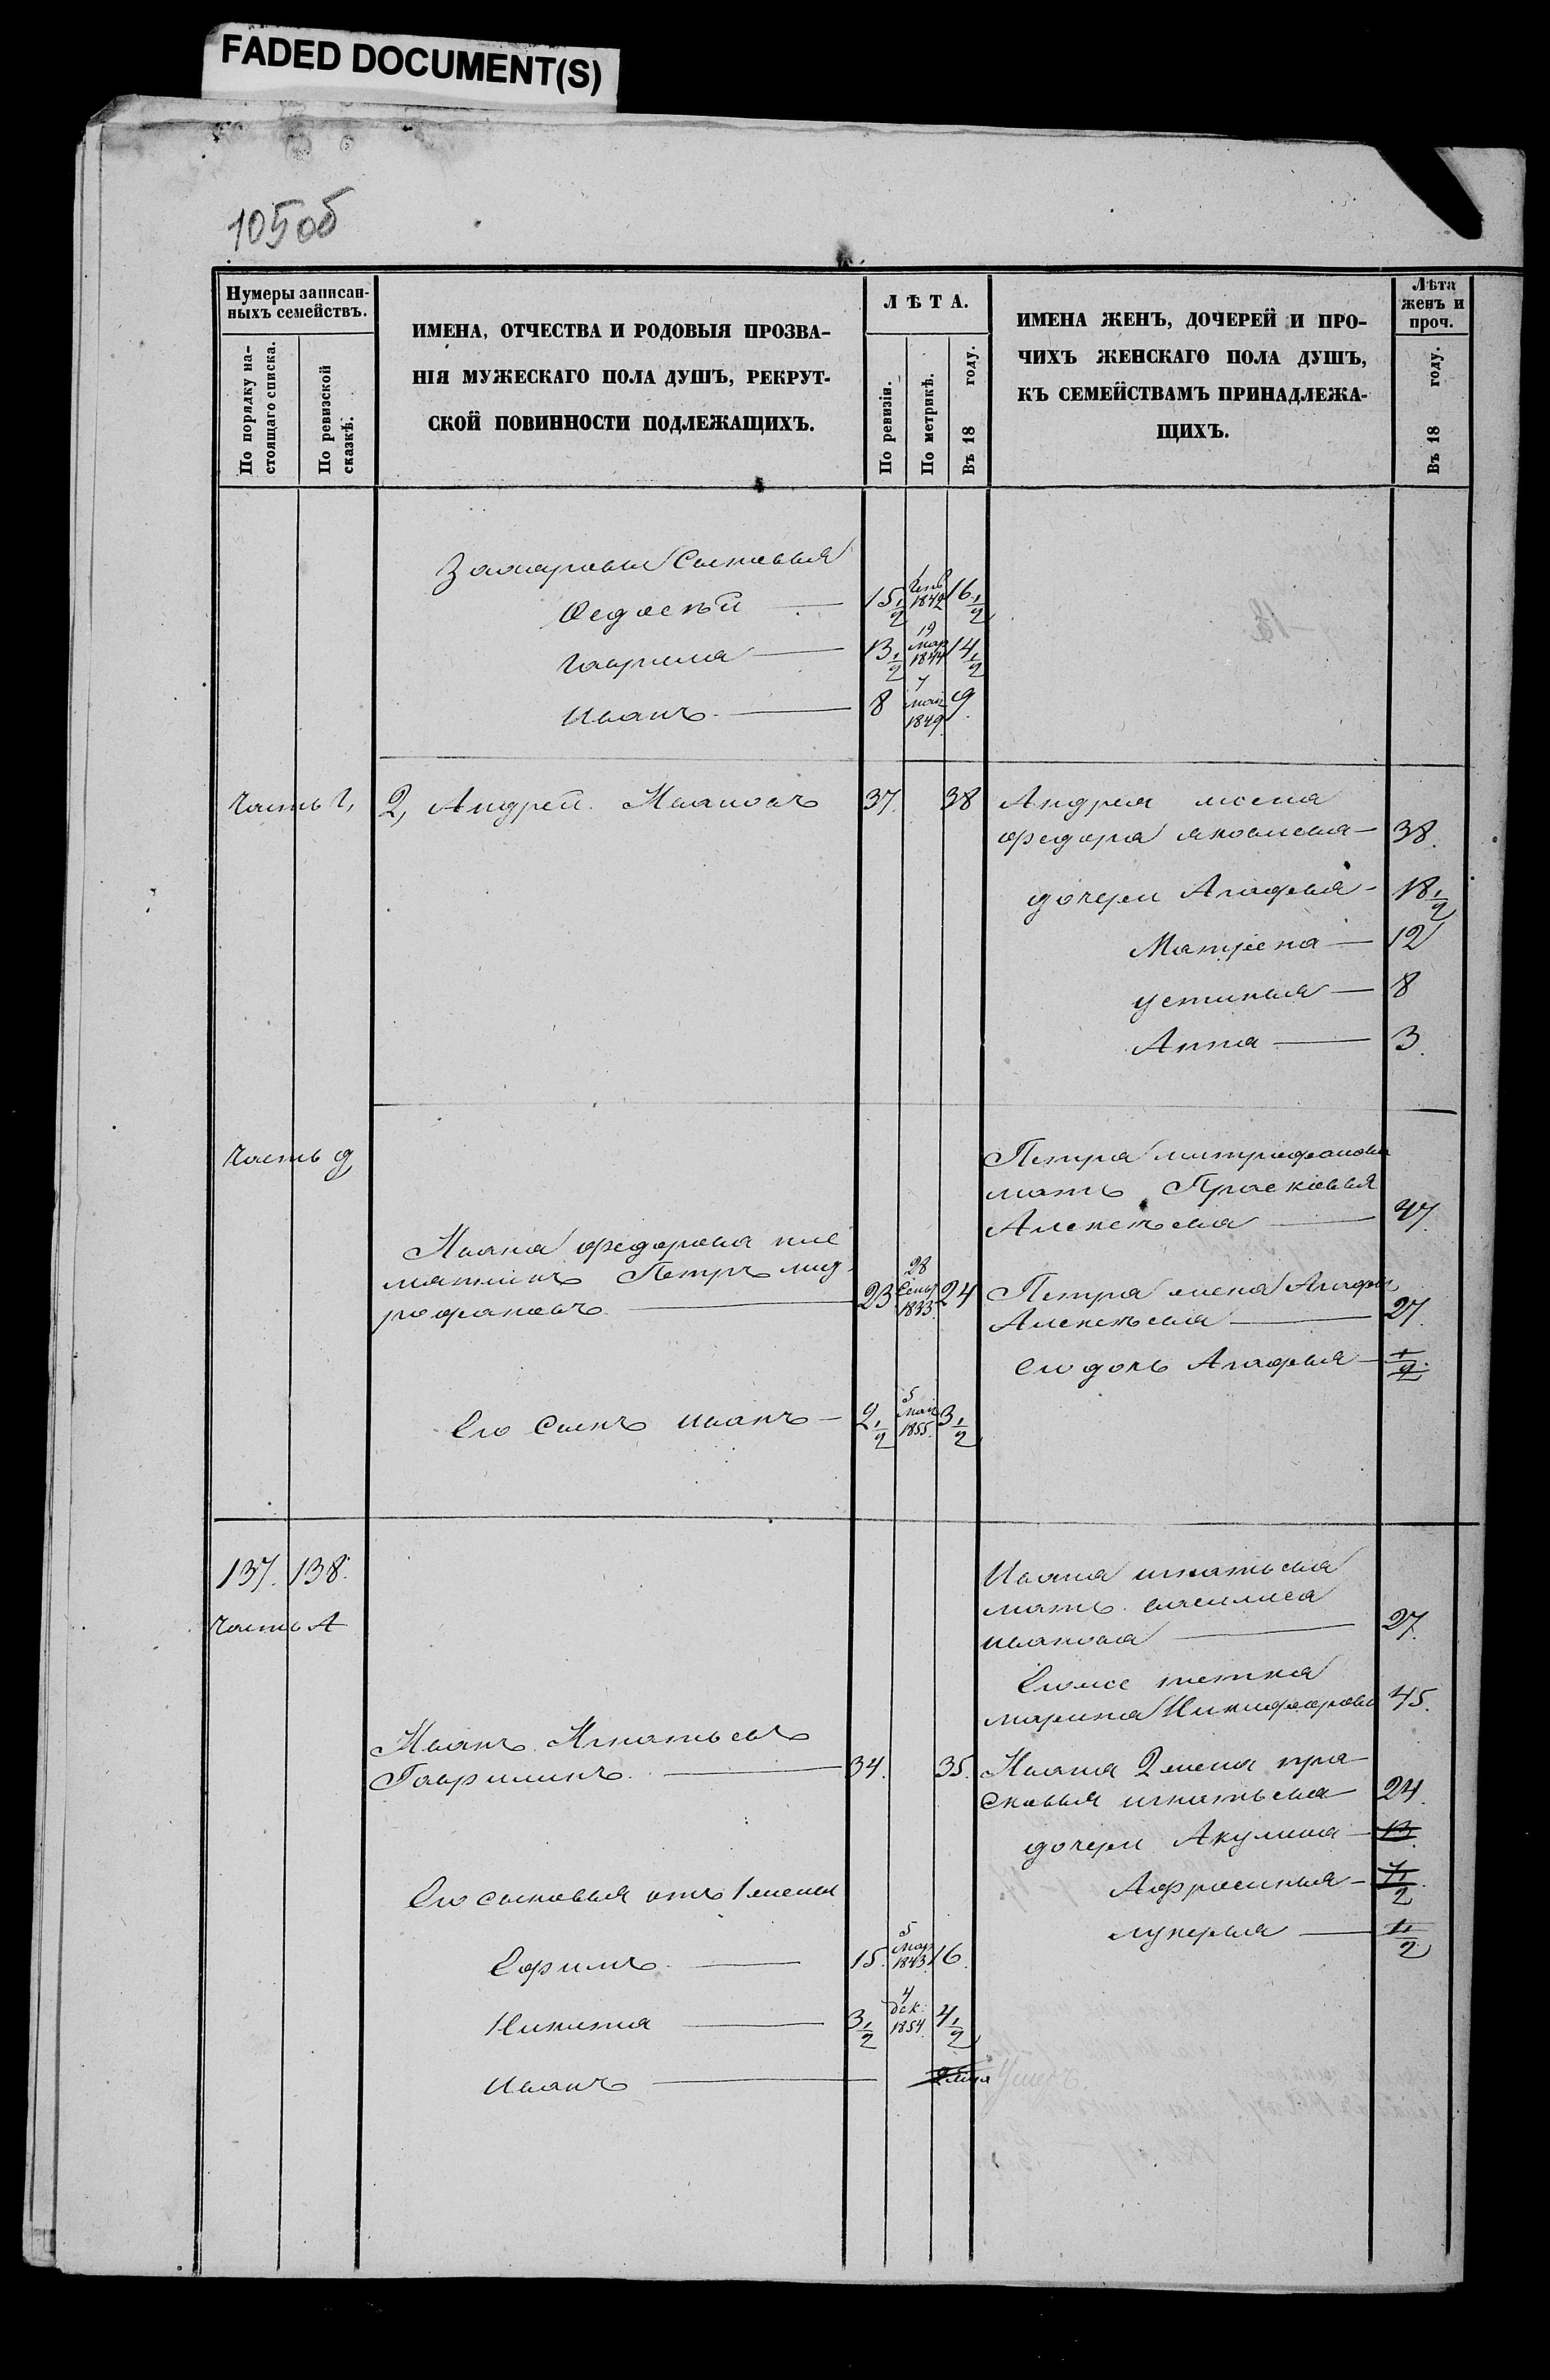 FADED DOCUMENT(S)
105об
Нумеры записан-
ныхъ семействъ.
По порядку на-
стоящаго списка.
По ревизской
сказкѣ.
ИМЕНА, ОТЧЕСТВА И РОДОВЫЯ ПРОЗВА-
НІЯ МУЖЕСКАГО ПОЛА ДУШЪ, РЕКРУТ-
СКОЙ ПОВИННОСТИ ПОДЛЕЖАЩИХЪ.
ЛѢТА.
По ревизіи.
По метрикѣ.
Въ 18 году.
ИМЕНА ЖЕНЪ, ДОЧЕРЕЙ И ПРО-
ЧИХЪ ЖЕНСКАГО ПОЛА ДУШЪ,
КЪ СЕМЕЙСТВАМЪ ПРИНАДЛЕЖА-
ЩИХЪ.
Лѣта
женъ и
проч.
Въ 18 году.
Захаровы Сыновья
Федосѣй 15 1/2 1842 16 1/2
Гаврила 13 1/2 19 мар 1844 14 1/2
Иванъ 8 7 мая 1849 9
Часть Г, 2, Андрей Ивановъ 37. 38 Андрея жена
Федора яковлева 38.
дочери Агафья 18 1/2
Матрена 12
устинья 8
Анна 3.
Часть д
Петра митрофанова
мать Прасковья
Алексѣева 47.
Ивана федорова пле
мянникъ Петръ мит
рофановъ 23 28 Сент 1833. 24
Петра жена Агафья
Алексѣева 27.
Его дочь Агафья 1/2.
Его Сынъ иванъ 2 1/2 5 мая 1855. 3 1/2
137. 138.
Часть А
Ивана игнатьева
мать василиса
иванова 27.
Егоже тетка
марина Никифорова 45.
Иванъ Игнатьевъ
Гаврилинъ. 34. 35.
Ивана 2 жена пра
сковья игнатьева 24.
дочери Акулина 13.
Афросинья 7 1/2.
лукерья 1 1/2
Его сыновья отъ 1 жены
Ефимъ 15. 5 мар 1843. 16.
Никита 3 1/2 4 дек. 1854. 4 1/2
Иванъ